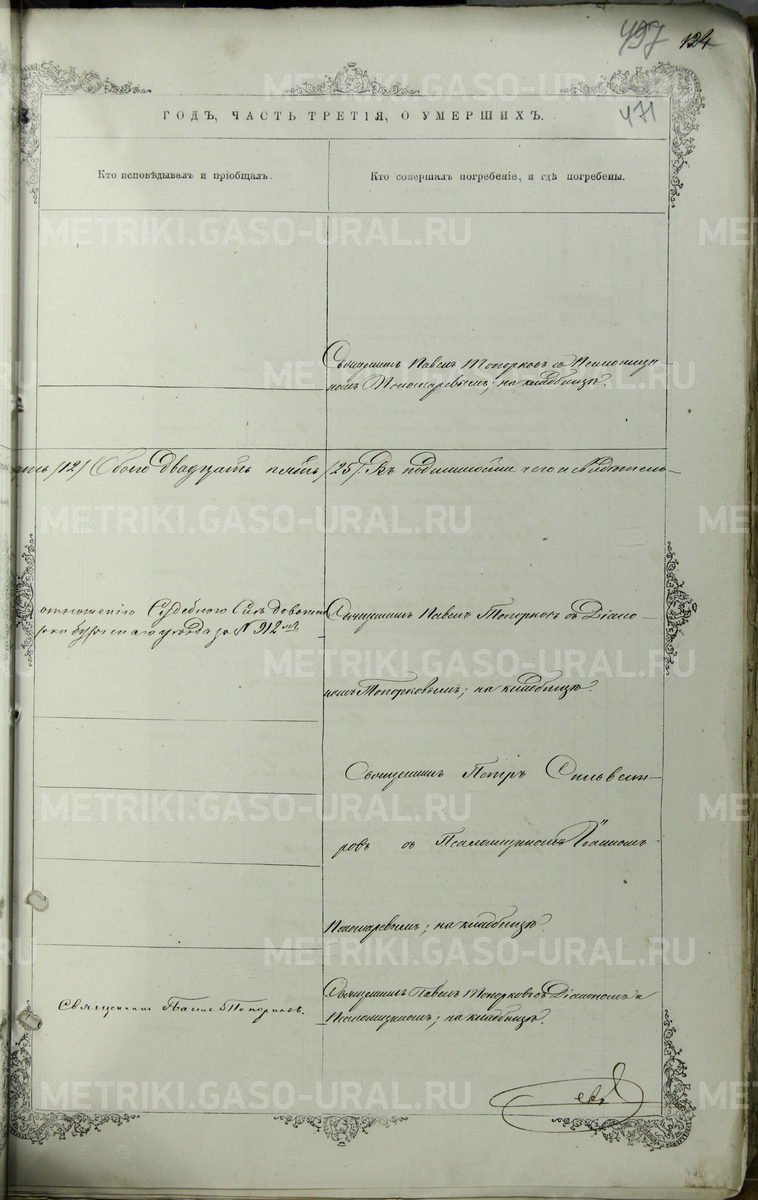 497 124
471
ГОДЪ, ЧАСТЬ ТРЕТІЯ, О УМЕРШИХЪ.
Кто исповѣдывалъ и пріобщалъ.
Кто совершалъ погребеніе, и гдѣ погребены.
METRIKI.GASO-URAL.RU
Священникъ Павелъ Топорковъ съ Псаломщи-
комъ Пономаревымъ; на кладбищѣ.
/12/ Обоего двадцать пять /25/. Въ подлинности чего и свидѣтель-
отношенію Судебнаго Слѣдовате
уѣзда за № 912мъ
Священникъ Павелъ Топорковъ съ Діако-
номъ Топорковымъ; на кладбищѣ.
Священникъ Петръ Сильвест-
ровъ съ Псаломщикомъ Іоанномъ
Пономаревымъ; на кладбищѣ.
Священникъ Павелъ Топорковъ.
Священникъ Павелъ Топорковъ съ Діакономъ и
Псаломщикомъ; на кладбищѣ.
евъ